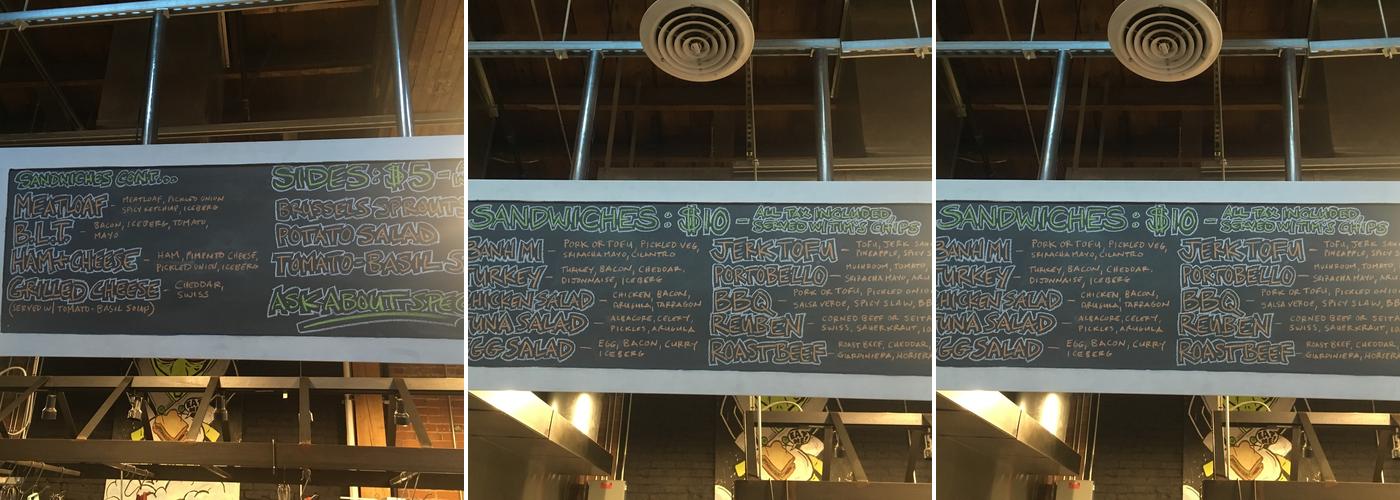 SANDWICHES CONT...
MEATLOAF - MEATLOAF, PICKLED ONION
SPICY KETCHUP, ICEBERG
B.L.T. - BACON, ICEBERG, TOMATO,
MAYO
HAM + CHEESE - HAM, PIMENTO CHEESE,
PICKLED ONION, ICEBERG
GRILLED CHEESE - CHEDDAR,
SWISS
(SERVED W/ TOMATO-BASIL SOUP)
SIDES: $5 -
BRUSSELS SPROUTS
POTATO SALAD
TOMATO-BASIL S
ASK ABOUT SPEC
SANDWICHES: $10 - ALL TAX INCLUDED,
SERVED W/ TIM'S CHIPS
BANH MI - PORK OR TOFU, PICKLED VEG,
SRIRACHA MAYO, CILANTRO
TURKEY - TURKEY, BACON, CHEDDAR,
DIJONNAISE, ICEBERG
CHICKEN SALAD - CHICKEN, BACON,
ARUGULA, TARRAGON
UNA SALAD - ALBACORE, CELERY,
PICKLES, ARUGULA
GG SALAD - EGG, BACON, CURRY
ICEBERG
JERK TOFU - TOFU, JERK SA
PINEAPPLE, SPICY S
PORTOBELLO - MUSHROOM, TOMATO,
SRIRACHA MAYO, ARU
BBQ - PORK OR TOFU, PICKLED ONI
SALSA VERDE, SPICY SLAW, B
REUBEN - CORNED BEEF OR SEITA
SWISS, SAUERKRAUT, 10
ROAST BEEF - ROAST BEEF, CHEDDAR,
GIARDINIERA, HORSER
SANDWICHES: $10 - ALL TAX INCLUDED,
SERVED W/ TIM'S CHIPS
BANH MI - PORK OR TOFU, PICKLED VEG,
SRIRACHA MAYO, CILANTRO
TURKEY - TURKEY, BACON, CHEDDAR,
DIJONNAISE, ICEBERG
CHICKEN SALAD - CHICKEN, BACON,
ARUGULA, TARRAGON
UNA SALAD - ALBACORE, CELERY,
PICKLES, ARUGULA
GG SALAD - EGG, BACON, CURRY
ICEBERG
JERK TOFU - TOFU, JERK SAN
PINEAPPLE, SPICY S
PORTOBELLO - MUSHROOM, TOMATO,
SRIRACHA MAYO, ARU
BBQ - PORK OR TOFU, PICKLED ONIO
SALSA VERDE, SPICY SLAW, BB
REUBEN - CORNED BEEF OR SEITA
SWISS, SAUERKRAUT, 10
ROAST BEEF - ROAST BEEF, CHEDDAR,
GIARDINIERA, HORSER